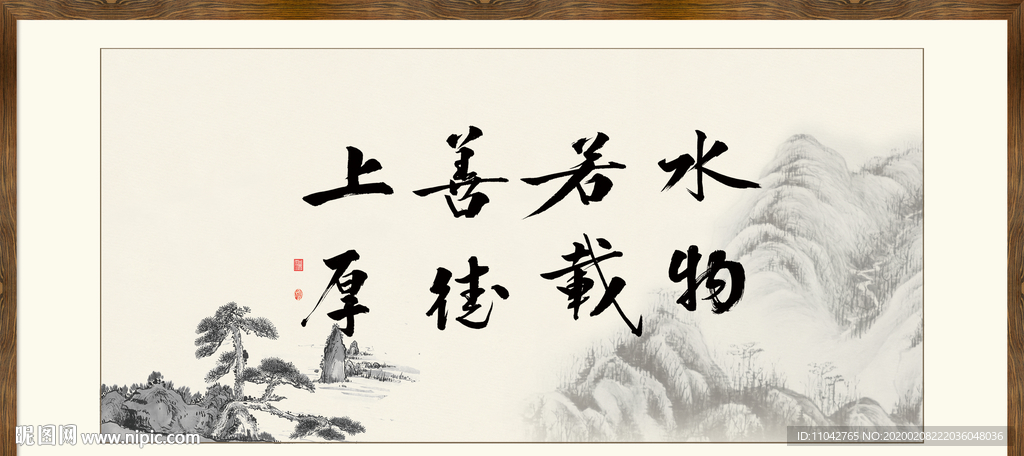 上善若水
厚德载物
昵图网 www.nipic.com
ID:11042765 NO:20200208222036048036